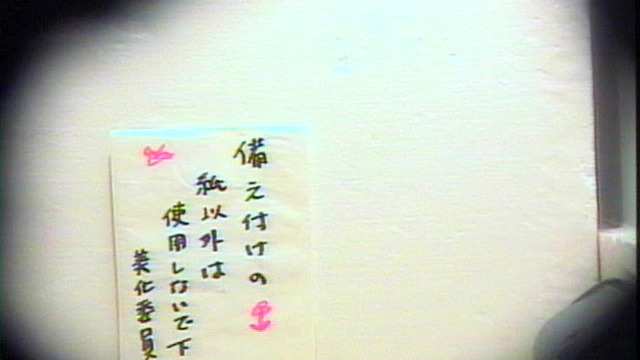 備え付けの
紙以外は
使用しないで下
美化委員